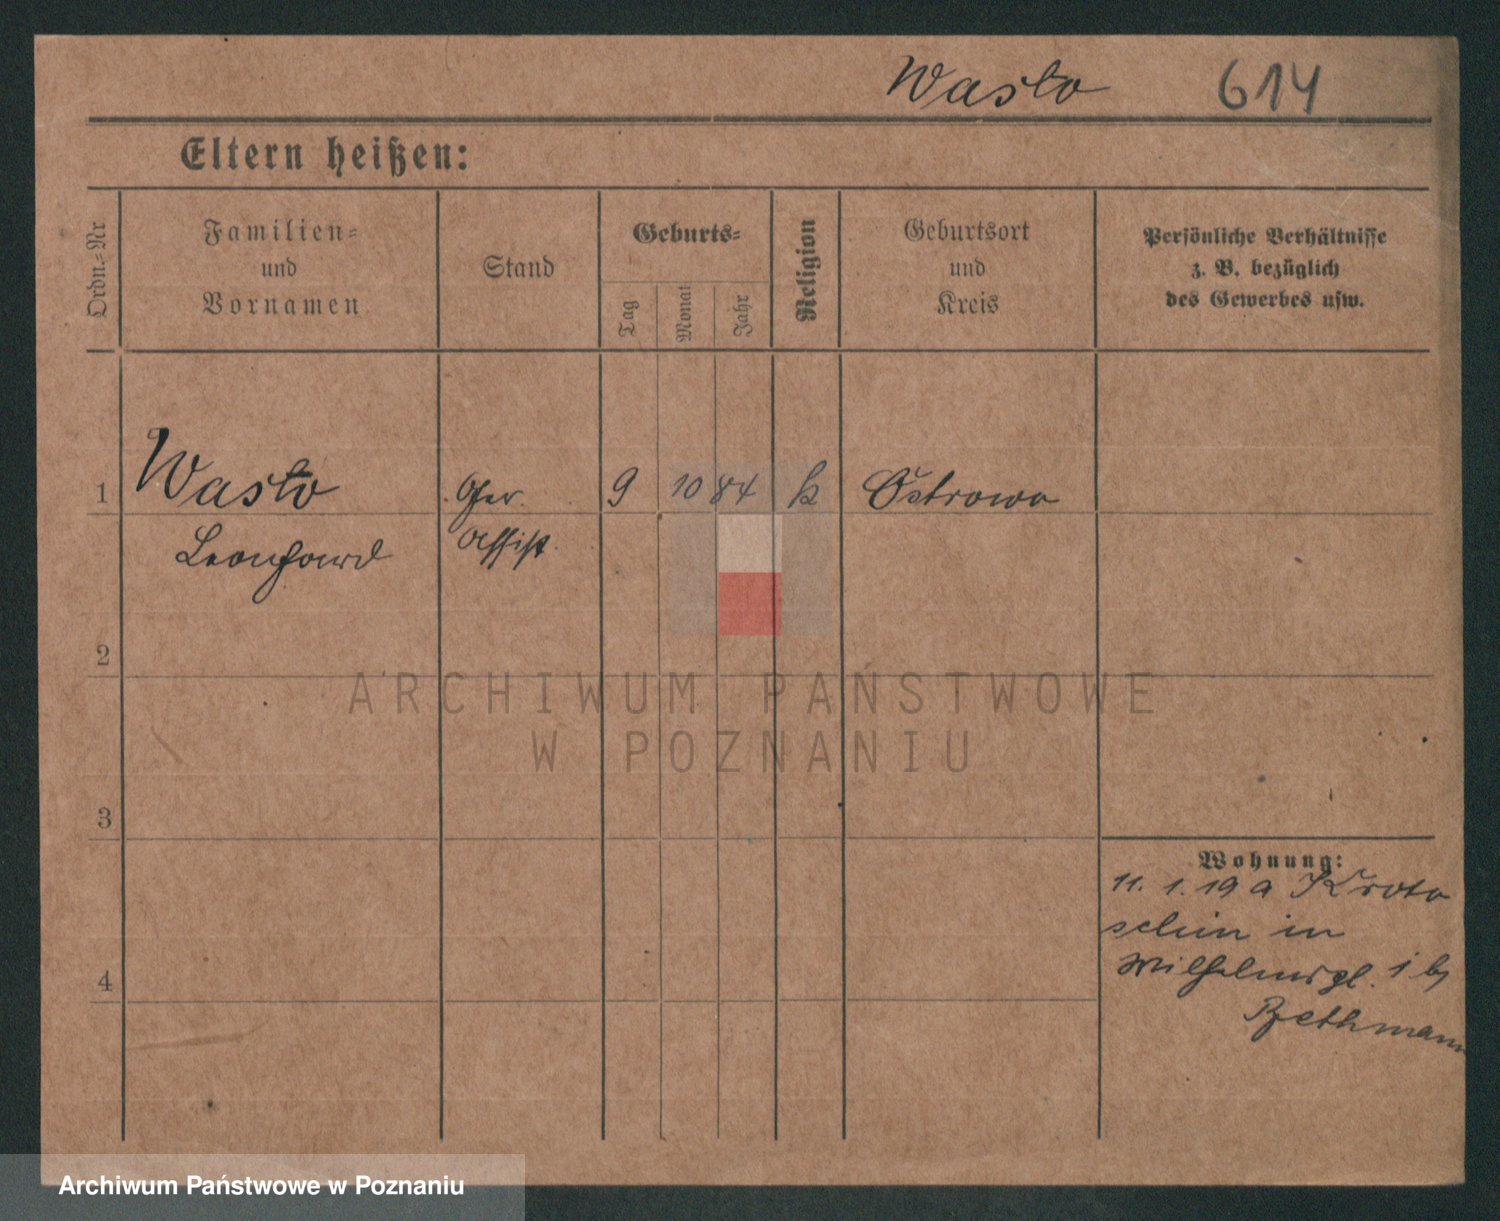 Wasto 614
Eltern heißen:
Ordn.-Nr
Familien-
und
Vornamen
Stand
Geburts-
Tag
Monat
Jahr
Religion
Geburtsort
und
Kreis
Persönliche Verhältnisse
z. B. bezüglich
des Gewerbes usw.
1 Wasto Ger. 9 10 84 k Ostrowo
Leonhard Assist.
2
ARCHIWUM PAŃSTWOWE
W POZNANIU
3
Wohnung:
11. 1. 19 a Kroto
schin in
Wilhelmspl. 1 b
Bethmann
4
Archiwum Państwowe w Poznaniu